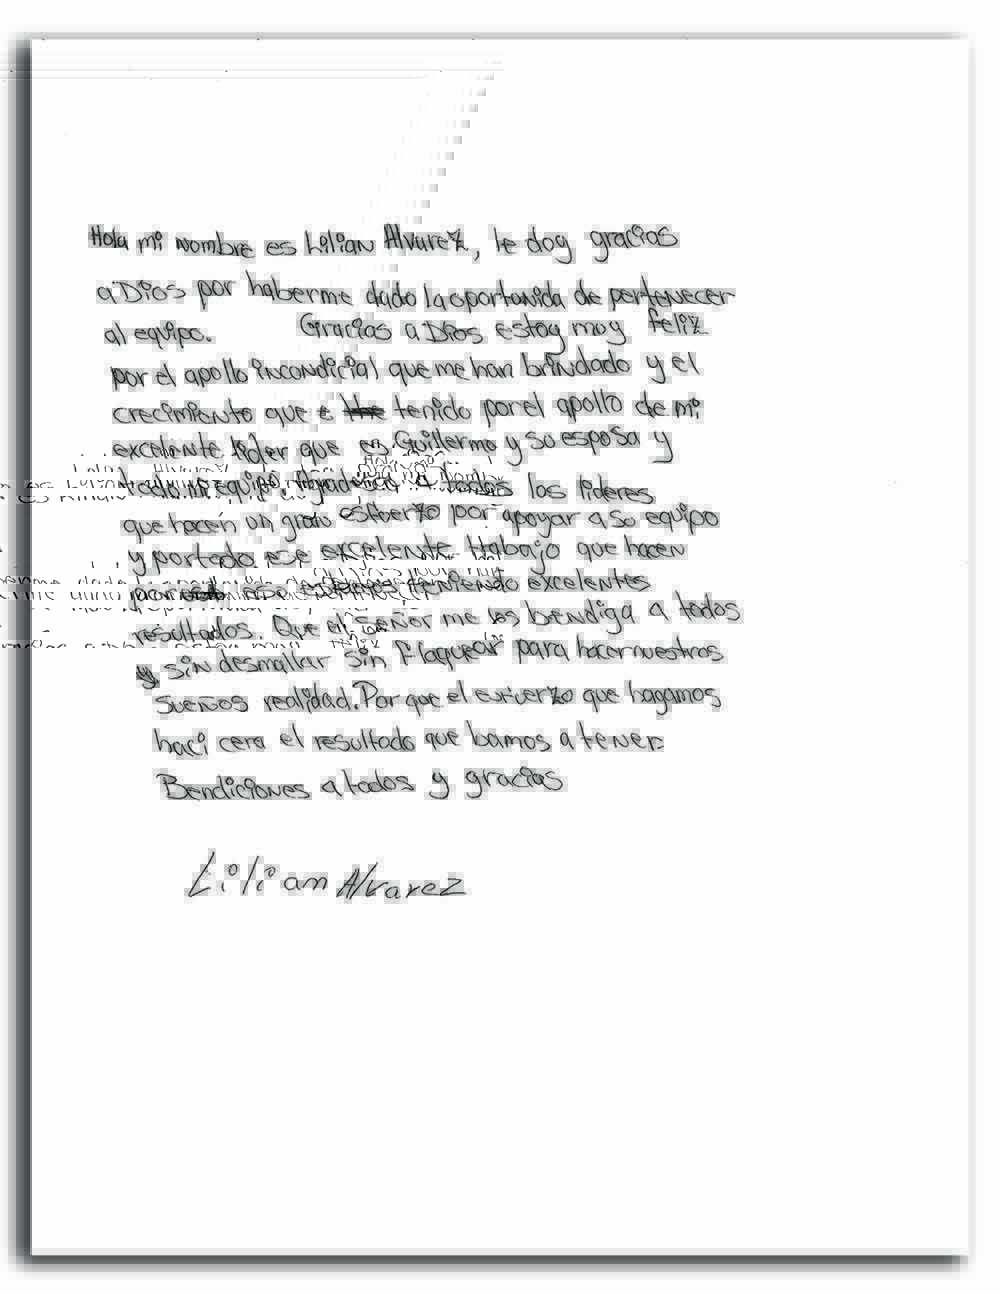 Hola mi nombre es Lilian Alvarez, le doy gracias
a Dios por haberme dado la oportunida de pertenecer
al equipo. Gracias a Dios estoy muy feliz
por el apollo incondicial que me han brindado y el
crecimiento que e tenido por el apollo de mi
excelente lider que es Guillermo y su esposa y
todo mi equipo. Agradesco a todos los lideres
que hacen un gran esfuerzo por apoyar a su equipo
y por todo ese excelente trabajo que hacen
teniendo excelentes
resultados. Que el señor me los bendiga a todos
y sin desmallar sin flaquear para hacer nuestros
sueños realidad. Por que el esfuerzo que hagamos
haci cera el resultado que bamos a tener.
Bendiciones a todos y gracias
Lilian Alvarez